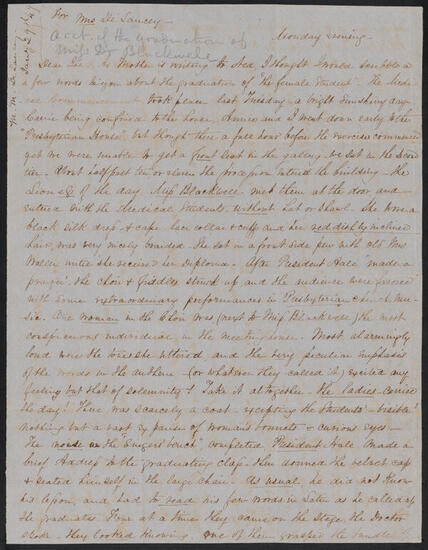 For Mrs De Lancey —
acct. of the graduation of
Miss Dr Blackwell
Monday evening —
Dear Mother is writing to I thought I would scribble a
a few words to you about the graduation of "the female Student". The Medi-
cal Commencement took place last Tuesday, a bright sunshiny day
Carrie being confined to the house, Annie and I went down early to the
"Presbyterian House", but though there a full hour before the exercises commenced
yet we were unable to get a front seat in the gallery, so sat in the second
tier. About half past ten or eleven the procession entered the building — the
Lioness of the day, Miss Blackwell met them at the door and
entered with the Medical Students without hat or shawl. She wore a
black silk dress & cape lace collar & cuffs and her reddishly inclined
hair was very nicely braided. She sat in a front side pew with old Mrs
Waller until she received her Diploma. After President Hale made a
prayer, the choir & fiddles struck up and the audience were
with some extraordinary performances in Presbyterian church mu-
sic. One woman in the Choir was (next to Miss Blackwell) the most
conspicuous individual in the meeting house. Most alarmingly
loud were the tones she uttered and the very peculiar emphasis
of the words in the anthem — (or whatever they called it) excited any
feeling but that of solemnity! Take it altogether, the ladies carried
the day! There was scarcely a coat — excepting the Students' — visible!
nothing but a vast expanse of woman's bonnets & curious eyes —
The noise in the "singers' bench" completed, President Hale made a
brief Address to the graduating class — then donned the velvet cap
& seated himself in the large chair. As usual he did not know
his lesson, and had to read his few words in Latin as he called up
the graduates. Four at a time they came on the stage, the Doctor
spoke. They looked knowing one of them grasped the bundle of